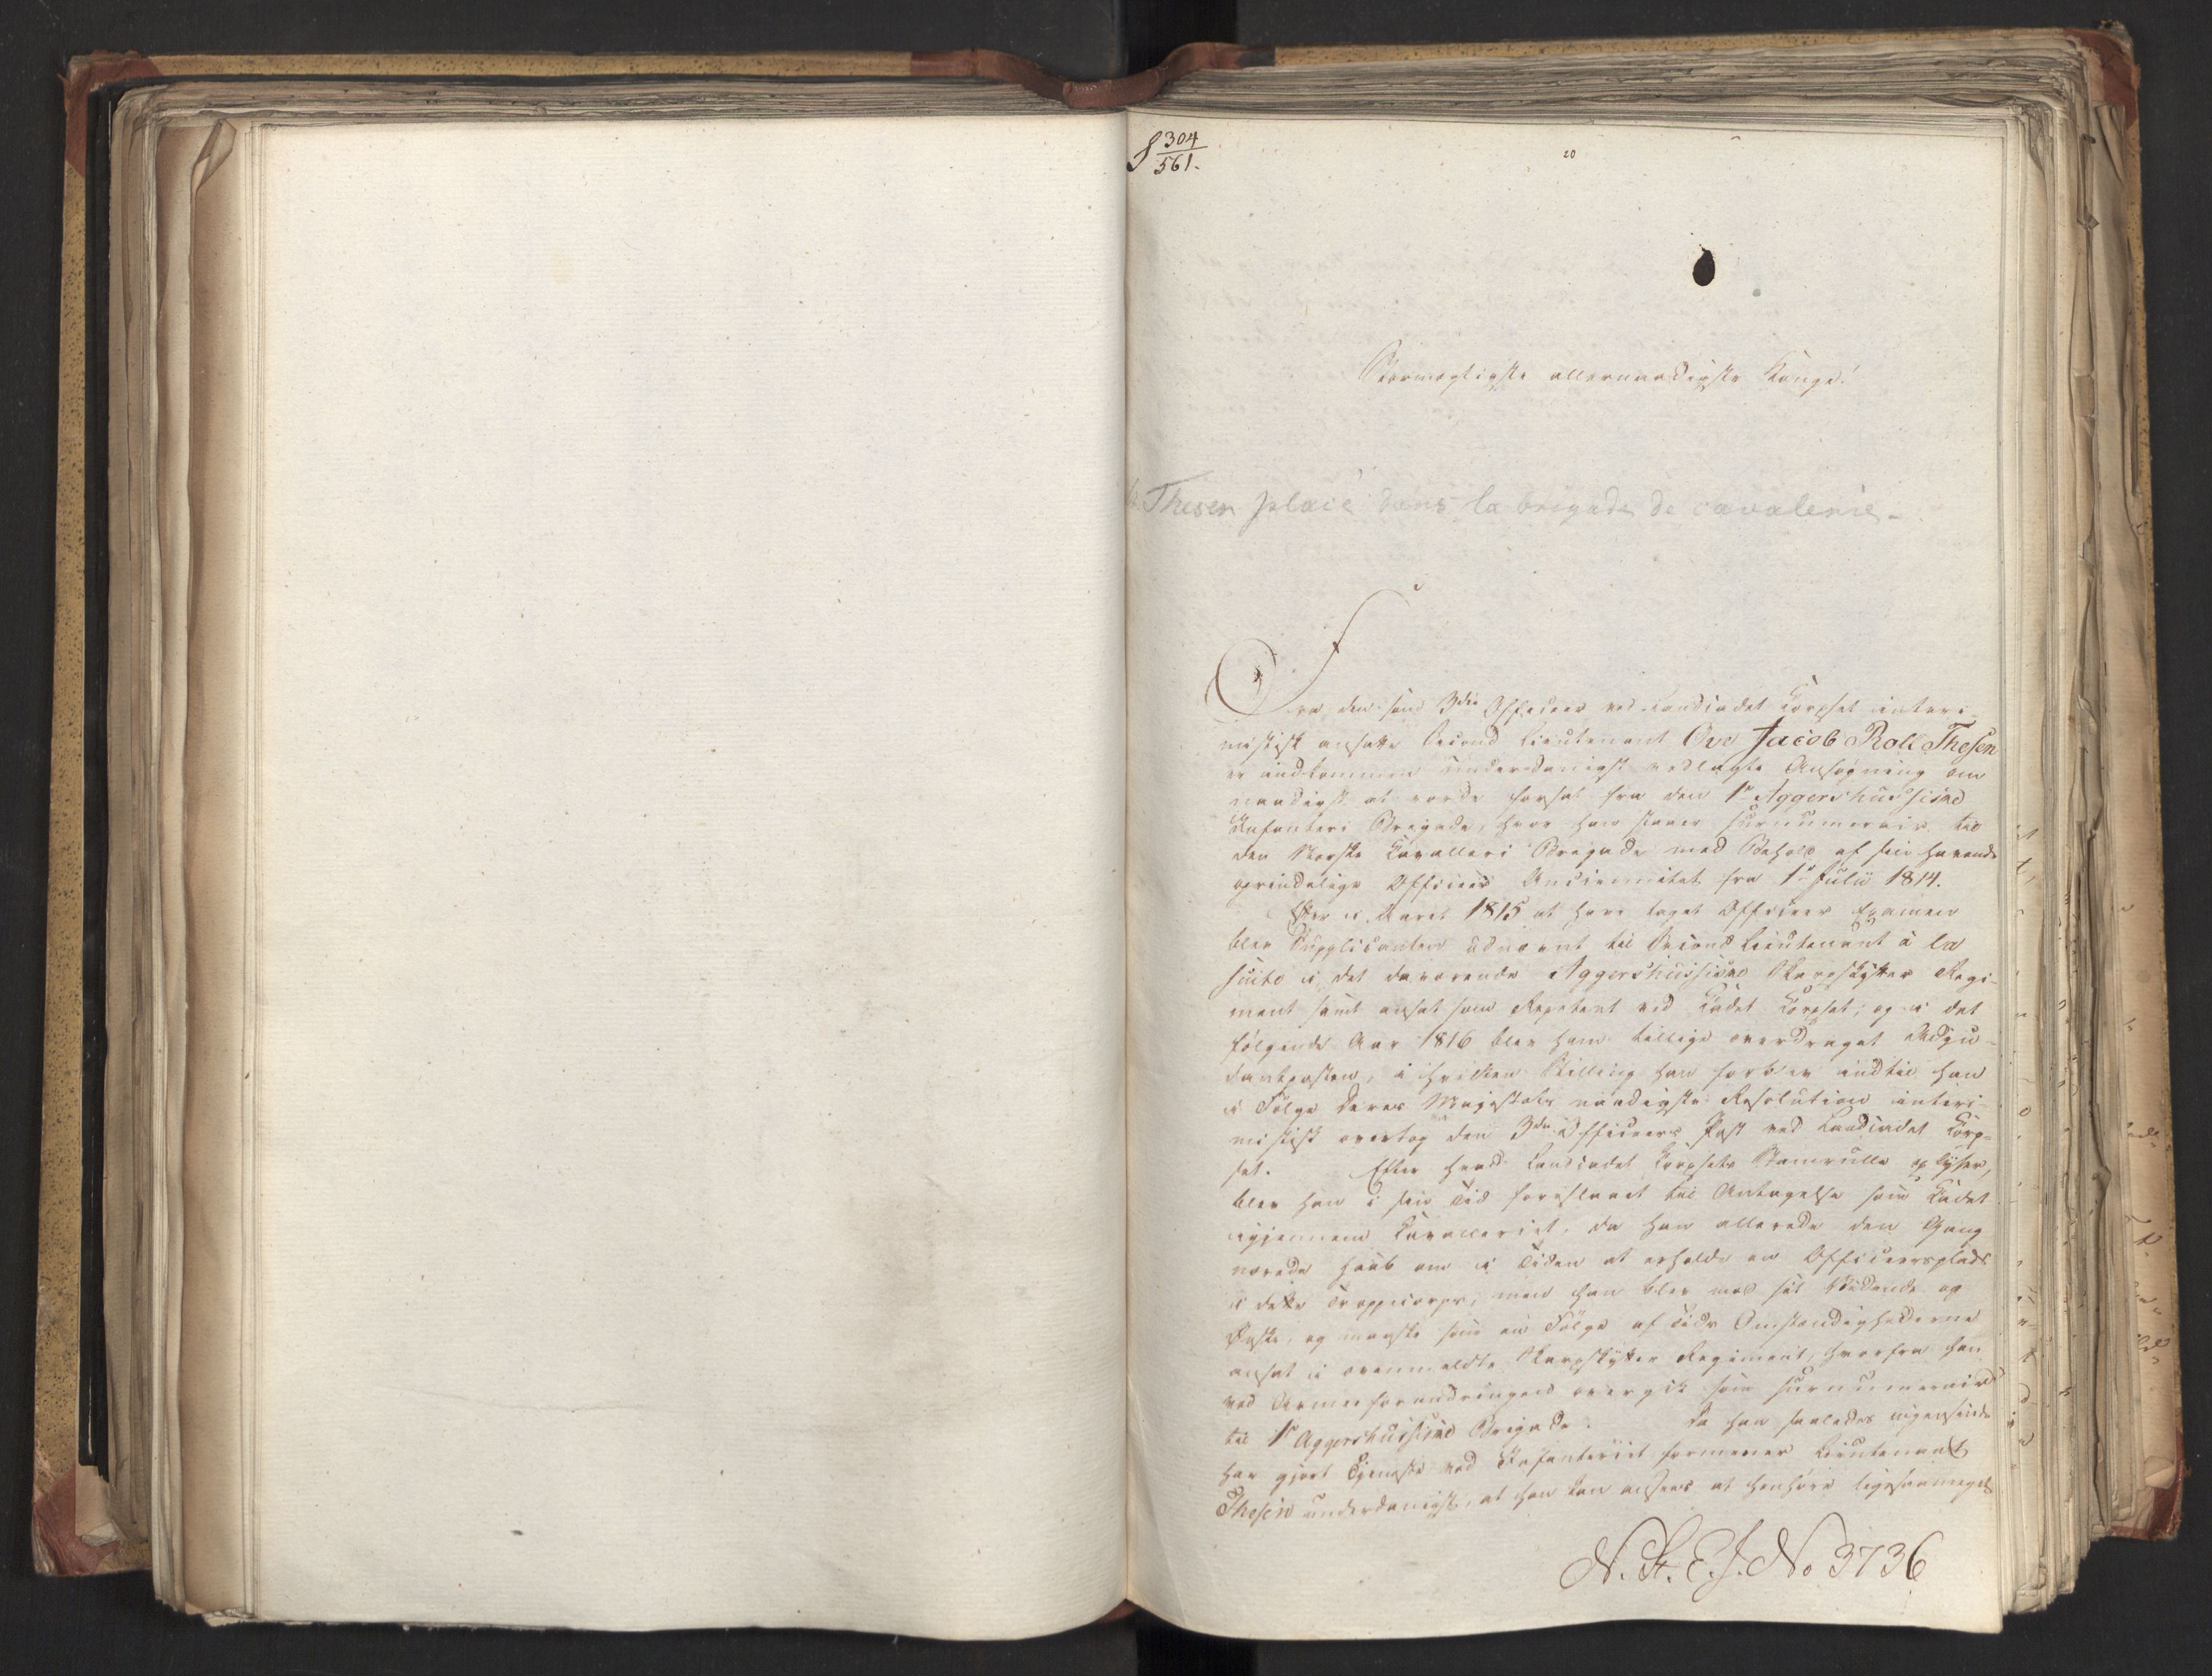 S 304/561.
20
Stormægtigste allernaadigste Konge!
Thesen placé dans la brigade de cavalerie.
Fra den som 3die Officeer ved Landcadet Corpset interi-
mistisk ansatte Second Lieutenant Ove Jacob Roll Thesen
er indkommen underdanigst vedlagte Ansøgning om
naadigst at vorde forsat fra den 1ste Aggershusiske
Infanteri Brigade, hvor han staaer surnumerair, til
den Norske Cavalleri Brigade med Behold af sin havende
oprindelige Officeers Anciennitet fra 1ste Julii 1814.
Efter i Aaret 1815 at have taget Officeers Examen
blev Supplicanten udnævnt til Second Lieutenant à la
suite i det daværende Aggershusiske Skarpskytter Regi-
ment samt ansat som Repetent ved Cadet Corpset; og i det
følgende Aar 1816 blev ham tillige overdraget Adju-
dantposten, i hvilken Stilling han forblev indtil han
i Følge Deres Majestæts naadigste Resolution interi-
mistisk overtog den 3die Officeers Post ved Landcadet Corp-
set. Efter hvad Landcadet Corpsets Stamrulle oplyser,
blev han i sin Tid foreslaaet til Antagelse som Cadet
igjennem Cavalleriet, da han allerede den Gang
nærede Haab om i Tiden at erholde en Officeersplads
i dette Troppecorps; men han blev mod sit Vidende og
Ønske, og maaske som en Følge af Tids Omstændighederne
ansat i ovenmeldte Skarpskytter Regiment, hvorfra han
ved Armeeforandringen overgik som surnumerair
til 1ste Aggershusiske Brigade. Da han saaledes ingensinde
har gjort Tjeneste ved Infanteriet formener Lieutenant
Thesen underdanigst, at han kan ansees at henhøre ligesaameget
N. St. E. J. No 3736